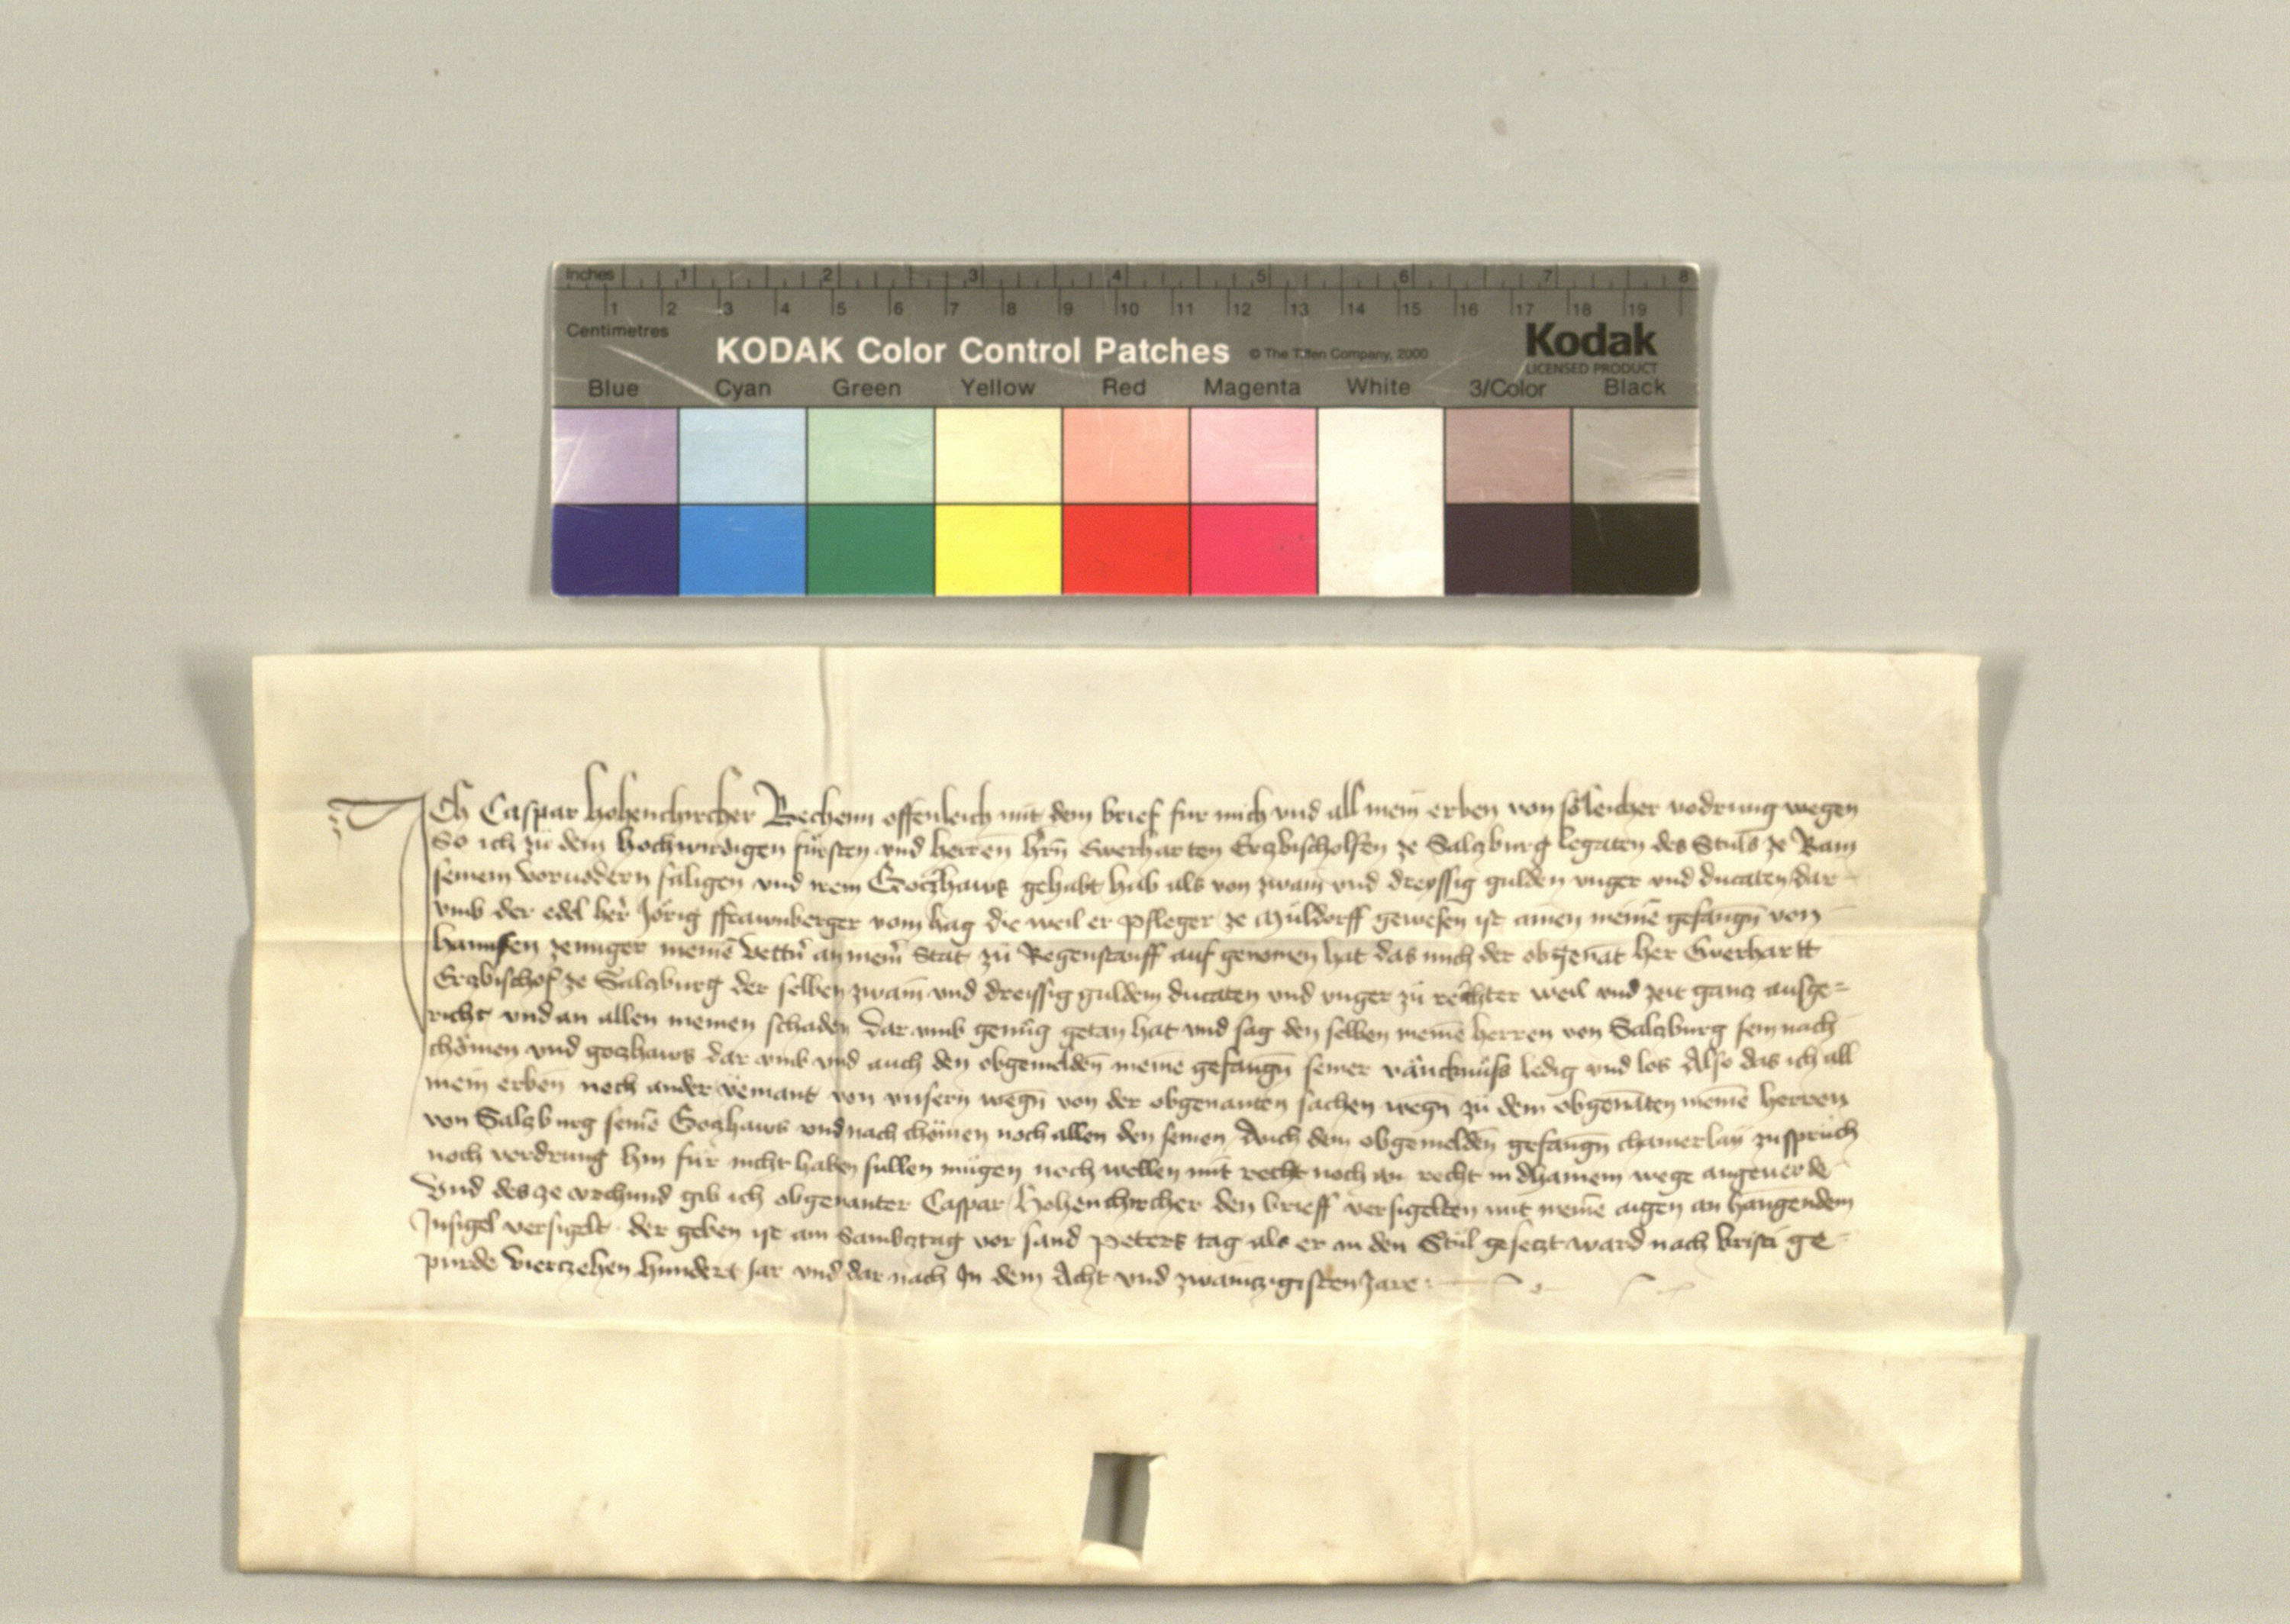 Inches 1 2 3 4 5 6 7 8
1 2 3 4 5 6 7 8 9 10 11 12 13 14 15 16 17 18 19
Centimetres
KODAK Color Control Patches © The Tiffen Company, 2000 Kodak
LICENSED PRODUCT
Blue Cyan Green Yellow Red Magenta White 3/Color Black
Ich Caspar hohenchircher Bechenn offenleich mit dem brief fur mich vnd all mein erben von söleicher vodrung wegen
So ich zü dem hochwirdigen fürsten vnd herren hrn̄ Ewerharten Erczbischolfen ze Salczburg legaten des Stuls ze Ram
seinem voruodern säligen vnd irem Goczhaws gehabt hab als von zwain vnd dreyssig gulden vnger vnd ducaten dar
vmb der edel her Jörig ffrawnberger vom hag die weil er pfleger ze Müldorff gewesen ist ainen meinē gefangn̄ von
hannsen zennger meinē vettn̄ an meiner Stat zü Regenstauff auf genomen hat das mich der obgenāt her Ewerhartt
Erczbischof ze Salczburg der selben zwain vnd dreissig guldein ducaten vnd vnger zü rechter weil vnd zeit gancz ausge=
richt vnd an allen meinen schaden dar vmb genüg getan hat vnd sag den selben meinē herren von Salczburg sein nach
chömen vnd goczhaws dar vmb vnd auch den obgemeldēn meinē gefangn̄ seiner vänckmüss ledig vnd los Also das ich all
mein erben noch ander yemant von vnsern wegn̄ von der obgenanten sachen wegn̄ zü dem obgenāten meinē herren
von Salczburg seinē Goczhaws vnd nach chömen noch allen den seinen Auch dem obgemeldēn gefangn̄ chainerlay zuspruch
noch vordrung hin für nicht haben sullen mügen noch wellen mit recht noch an recht in dhainem wege angeuerde
Vnd des ze vrchund gib ich obgenanter Caspar Hohenchircher den brieff versigelten mit meinē aigen an hangendem
Insigel versigelt der geben ist am Sambcztag vor sand peters tag als er an den Stül gesetzt ward nach kristi ge
purde Vierczehen hundert Jar vnd dar nach In dem Acht vnd zwainczigisten Jare